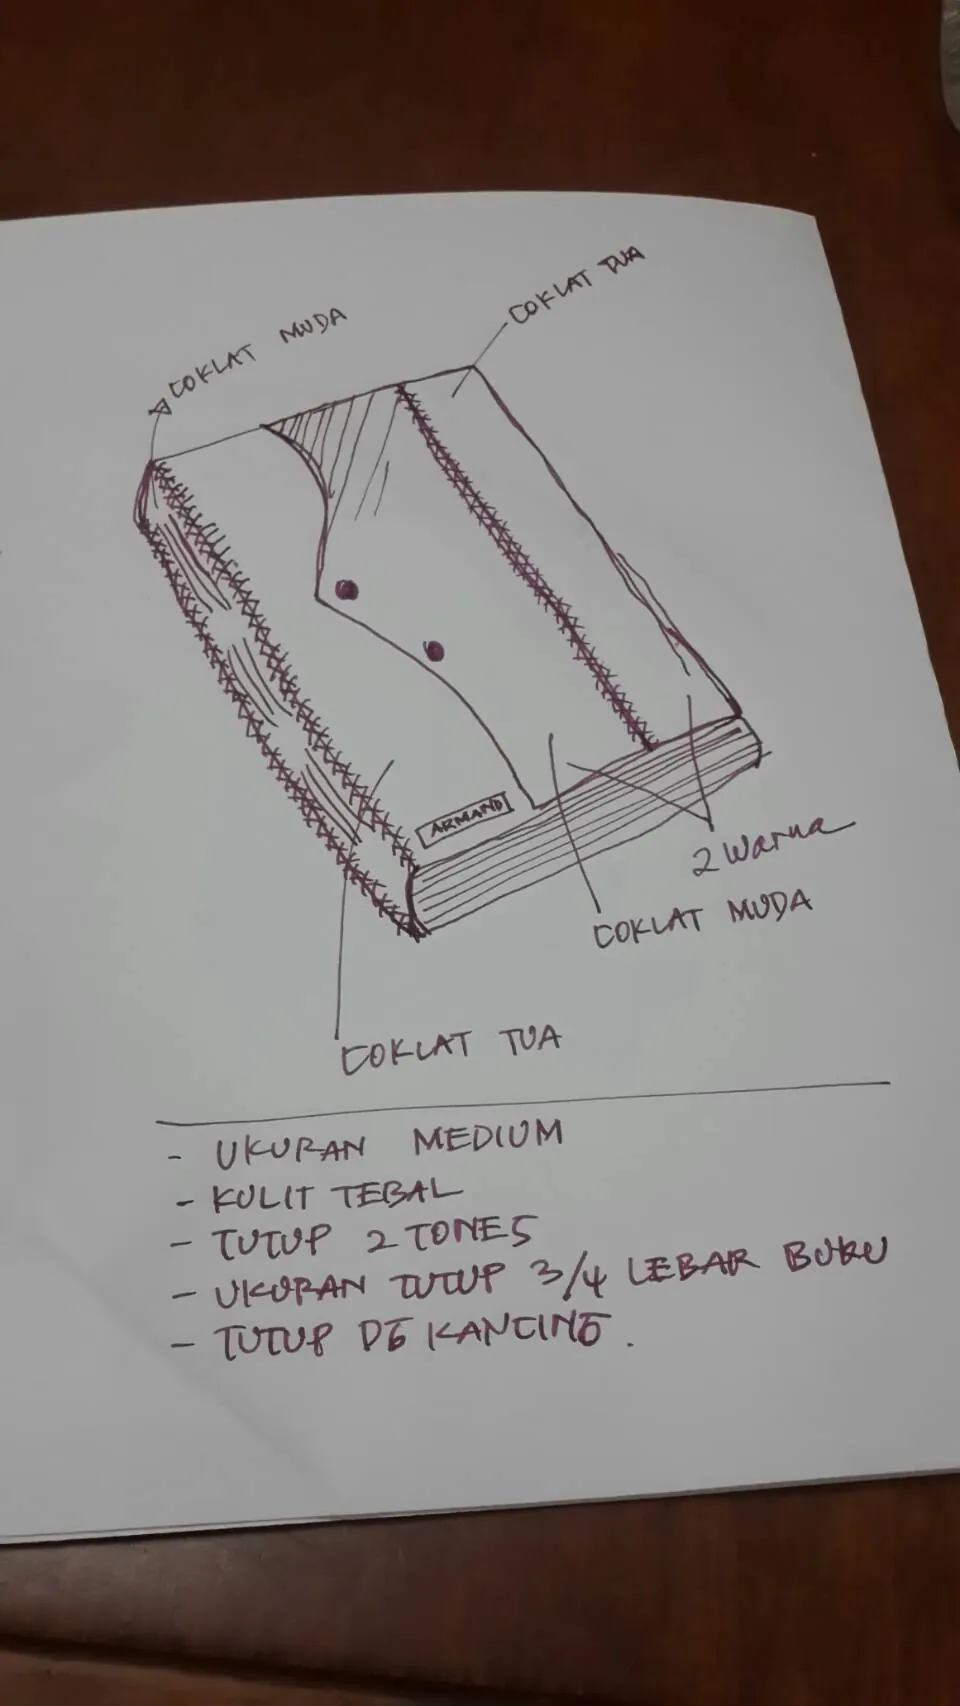 COKLAT TUA
COKLAT MUDA
ARMAND
2 Warna
COKLAT MUDA
COKLAT TUA
- UKURAN MEDIUM
- KULIT TEBAL
- TUTUP 2 TONES
- UKURAN TUTUP 3/4 LEBAR BUKU
- TUTUP DG KANCING.